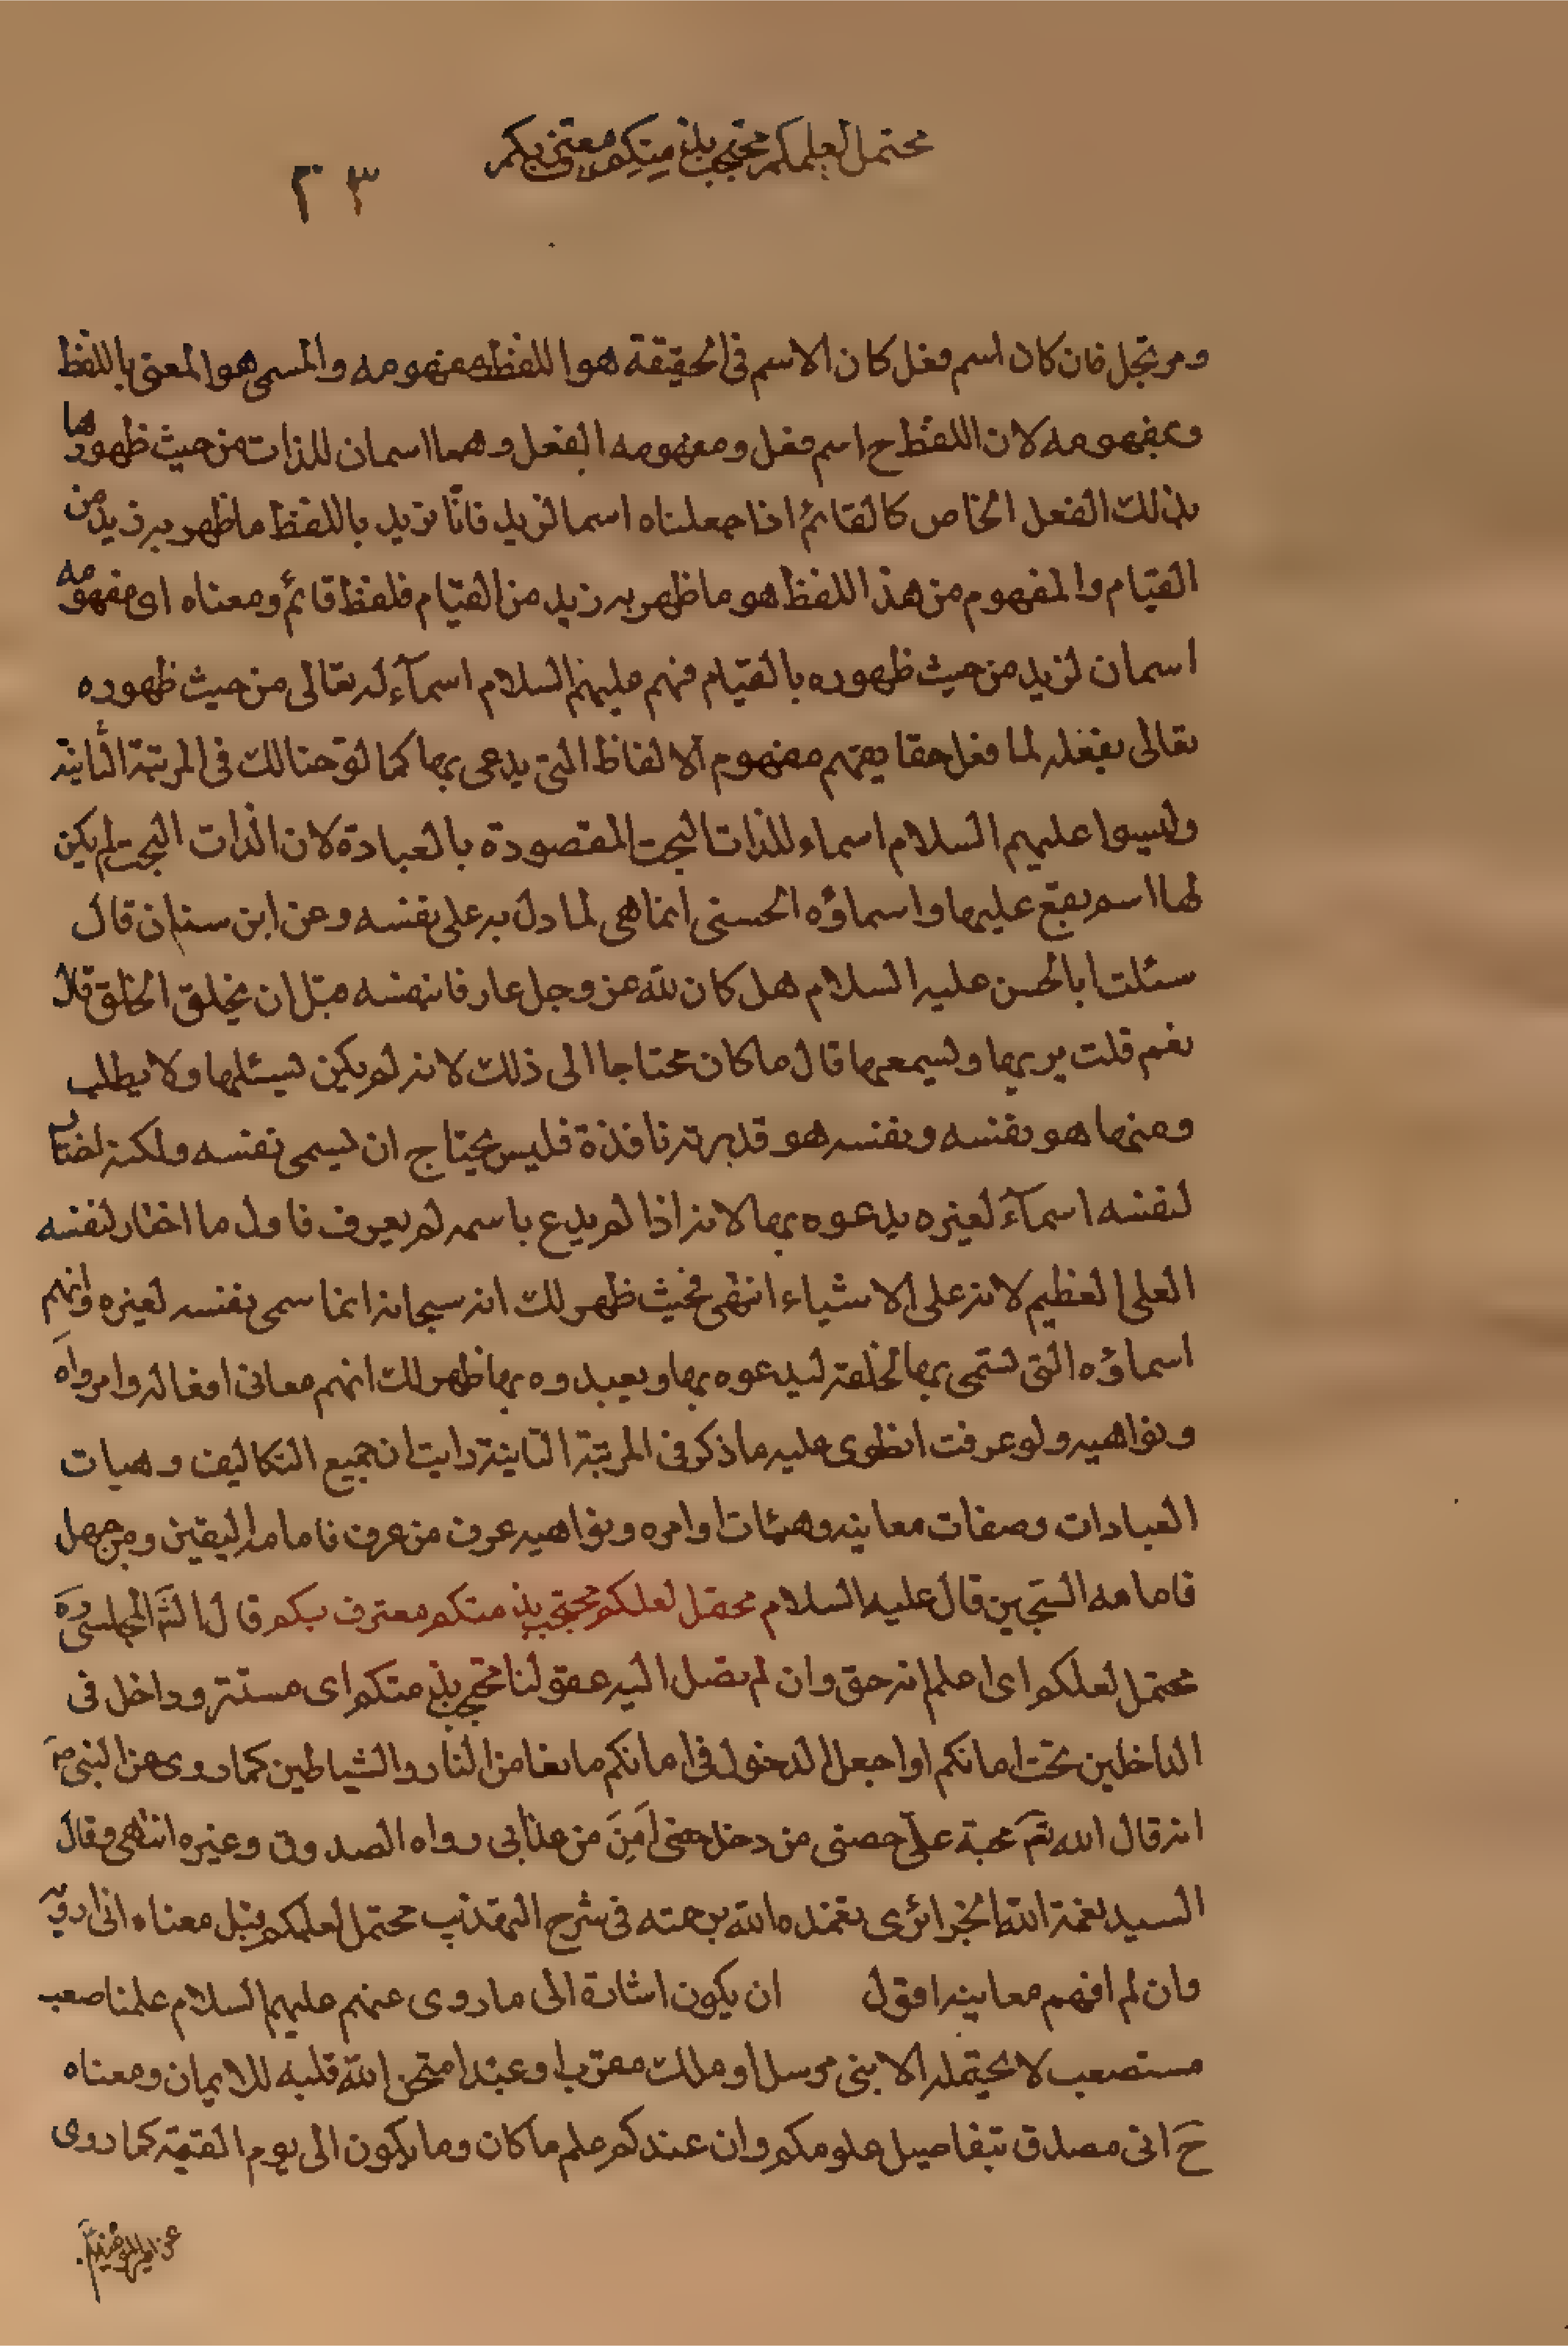 محتمل لعلمكم محتجب بذمتكم معترف بكم
٣ ٣
ومرتجل فان كان اسم فعل كان الاسم فى الحقيقة هو اللفظ ومفهومه والمسمى هو المعنى باللفظ
وبمفهومه لان اللفظ ح اسم فعل ومفهومه الفعل وهما اسمان للذات من حيث ظهورها
بذلك الفعل الخاص كالقائم اذا جعلناه اسما لزيد فانا نريد باللفظ ما ظهر به زيد من
القيام والمفهوم من هذا اللفظ هو ما ظهر به زيد من القيام فلفظ قائم ومعناه اى مفهومه
اسمان لزيد من حيث ظهوره بالقيام فهم عليهم السلام اسمآء له تعالى من حيث ظهوره
تعالى بفعله لما فعل حقايقهم مفهوم الالفاظ التى يدعى بها كما لوحنا لك فى المرتبة الثانية
وليسوا عليهم السلام اسماء للذات البحت المقصودة بالعبادة لان الذات البحت لم يكن
لها اسم يقع عليها واسماؤه الحسنى انما هى لما دل به على نفسه وعن ابن سنان قال
سئلت ابا الحسن عليه السلام هل كان الله عز وجل عارفا بنفسه قبل ان يخلق الخلق قال
نعم قلت يريها ويسمعها قال ما كان محتاجا الى ذلك لانه لم يكن يسئلها ولا يطلب
ومنها هو نفسه ونفسه هو قدرته نافذة فليس يحتاج ان يسمى نفسه ولكنه اختار
لنفسه اسمآء لغيره يدعوه بها لانه اذا لم يدع باسمه لم يعرف فاول ما اختار لنفسه
العلى العظيم لانه على الاشياء انتهى فحيث ظهر لك انه سبحانه انما سمى نفسه لغيره وانهم
اسماؤه التى تسمى بها لخلقه ليدعوه بها ويعبدوه بها ظهر لك انهم معانى افعاله وامرواه
ونواهيه ولو عرفت انطوى عليه ما ذكر فى المرتبة الثانية رايت ان جميع التكاليف وهيات
العبادات وصفات معانيه وهيئات اوامره ونواهيه عرف من عرف فامامه اليقين ومن جهل
فامامه السجين قال عليه السلام محتمل لعلمكم محتجب بذمتكم معترف بكم قال الشَّ المجلسى ره
محتمل لعلمكم اى اعلم انه حق وان لم تصل اليه عقولنا محتجب بذمتكم اى مستتر وداخل فى
الداخلين تحت امانكم او اجعل الدخول فى امانكم مانعا من النار والشياطين كما روى عن النبى ص
انه قال الله تعَ محبة على حصنى من دخل حصنى اَمِنَ من عذابى رواه الصدوق وغيره انتهى وقال
السيد نعمة الله الجزائرى تغمده الله برحمته فى شرح التهذيب محتمل لعلمكم قيل معناه انى ارويه
وان لم افهم معانيه اقول ان يكون اشارة الى ما روى عنهم عليهم السلام علمنا صعب
مستصعب لا يحتمله الا نبى مرسل او ملك مقرب او عبد امتحن الله قلبه للايمان ومعناه
حَ انى مصدق بتفاصيل علومكم وان عندكم علم ما كان وما يكون الى يوم القيمة كما روى